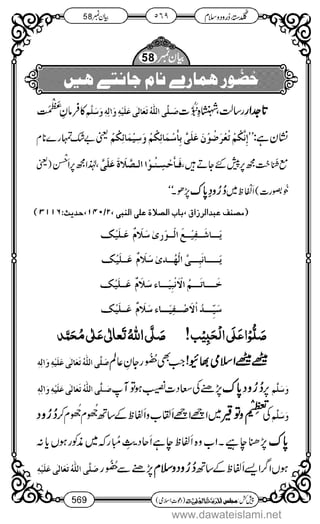 گلدستۂ درود و سلام ٥٦٩ بیان نمبر 58
بیان نمبر 58
حضور ہمارے نام جانتے ہیں
تاجدارِ رسالت، شہنشاہِ نُبُوَّت صَلَّی اللّٰہُ تَعَالٰی عَلَیْہِ وَاٰلِہٖ وَسَلَّم کا فرمانِ عَظَمَت
نشان ہے: ”اِنَّکُمْ تُعْرَضُوْنَ عَلَیَّ بِاَسْمَائِکُمْ وَسِیْمَائِکُمْ یعنی بے شک تمہارے نام
مع شناخت مجھ پر پیش کئے جاتے ہیں، فَاَحْسِنُوا الصَّلَاۃَ عَلَیَّ لہٰذا مجھ پر اَحْسن (یعنی
خوبصورت) اَلفاظ میں دُرُودِ پاک پڑھو۔“
(مصنف عبدالرزاق، باب الصلاۃ علی النبی، ۲/۱۴۰، حدیث: ۳۱۱۶)
یَا شَفِیْعَ الْوَرٰی سَلَامٌ عَلَیْکَ
یَا نَبِیَّ الْھُدٰی سَلَامٌ عَلَیْکَ
خَاتَمَ الْاَنْبِیَاء سَلَامٌ عَلَیْکَ
سَیِّدَ الْاَصْفِیَاء سَلَامٌ عَلَیْکَ
صَلُّوْا عَلَی الْحَبِیْب! صَلَّی اللّٰہُ تَعَالٰی عَلٰی مُحَمَّد
میٹھے میٹھے اسلامی بھائیو! جب بھی حُضُور جانِ عالم صَلَّی اللّٰہُ تَعَالٰی عَلَیْہِ وَاٰلِہٖ
وَسَلَّم پر دُرُودِ پاک پڑھنے کی سعادت نصیب ہو تو آپ صَلَّی اللّٰہُ تَعَالٰی عَلَیْہِ وَاٰلِہٖ
وَسَلَّم کی تعظیم و توقیر میں اچھے اچھے اَلقاب و اَلفاظ کے ساتھ جُھوم جُھوم کر دُرُود
پاک پڑھنا چاہیے۔ اب وہ اَلفاظ چاہے اَحادیثِ مُبارَکہ میں مذکور ہوں یا نہ
ہوں اگر ایسے اَلفاظ کے ساتھ دُرُود و سلام پڑھنے سے حُضُور صَلَّی اللّٰہُ تَعَالٰی عَلَیْہِ
569 پیش کش: مجلس المدینۃ العلمیۃ (دعوتِ اسلامی)
www.dawateislami.net